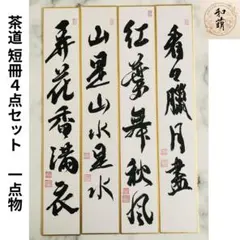 茶道 短冊4点セット 一点物
和萌
看々臘月盡
紅葉舞秋風
山是山水是水
弄花香満衣